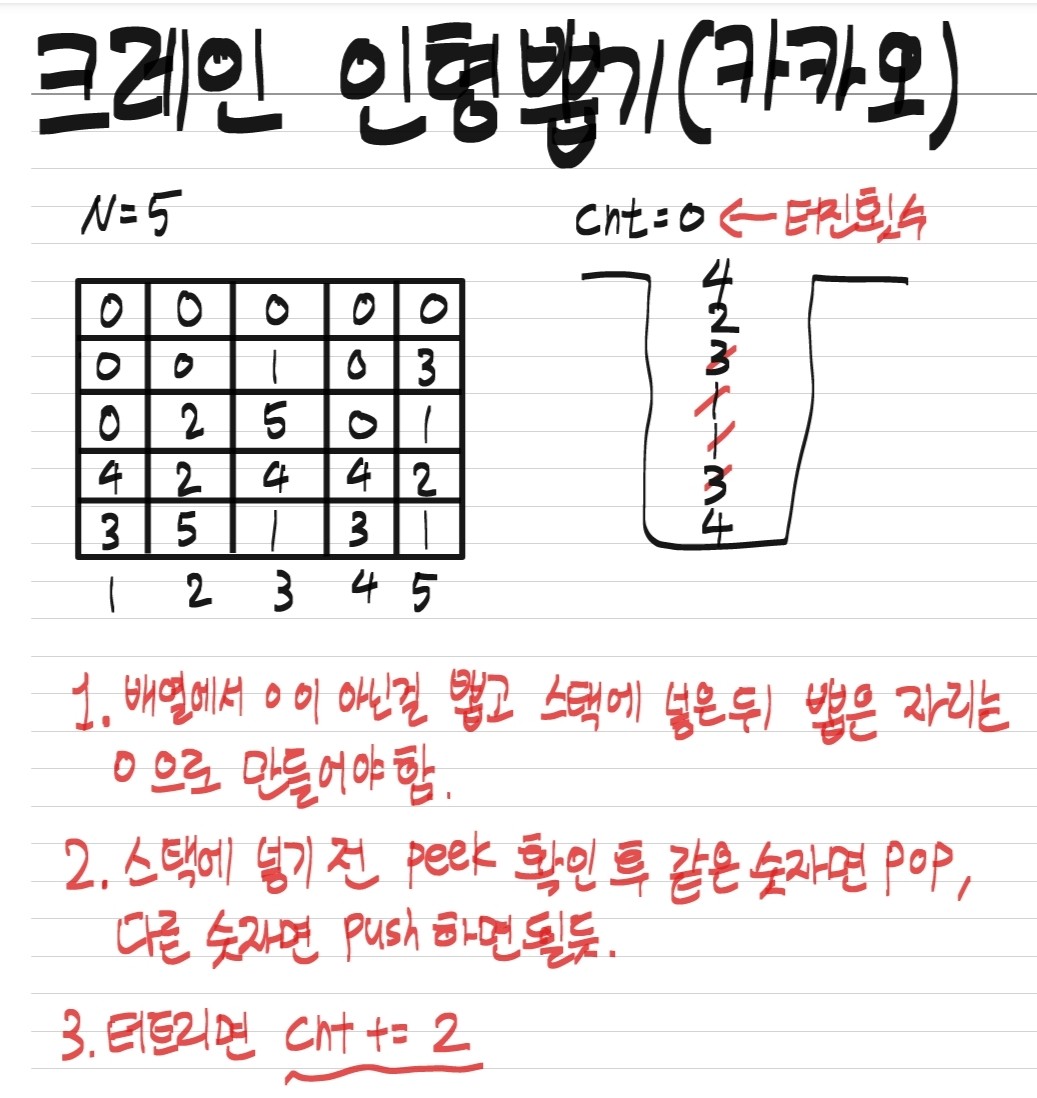 크레인 인형뽑기(카카오)
N=5
cnt=0 ←터진횟수
0 0 0 0 0
0 0 1 0 3
0 2 5 0 1
4 2 4 4 2
3 5 1 3 1
1 2 3 4 5
4
2
3
1
1
3
4
1. 배열에서 0이 아닌걸 뽑고 스택에 넣은뒤 뽑은 자리는
0으로 만들어야함.
2. 스택에 넣기전 peek 확인후 같은숫자면 pop,
다른 숫자면 push하면될듯.
3. 터트리면 cnt += 2